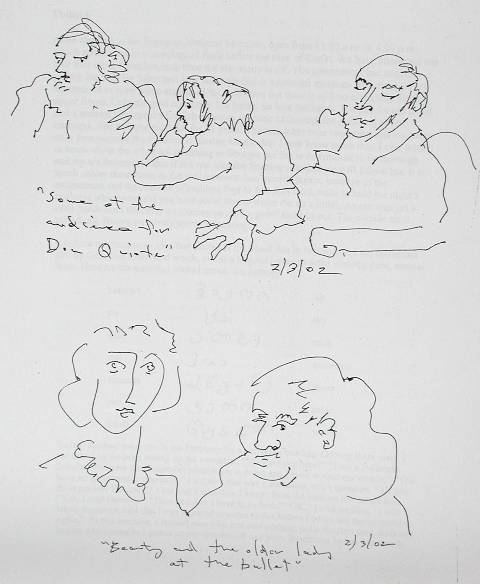 "Some of the
audience for
Don Quixote"
2/3/02
"Beauty and the older lady 2/3/02
at the ballet"